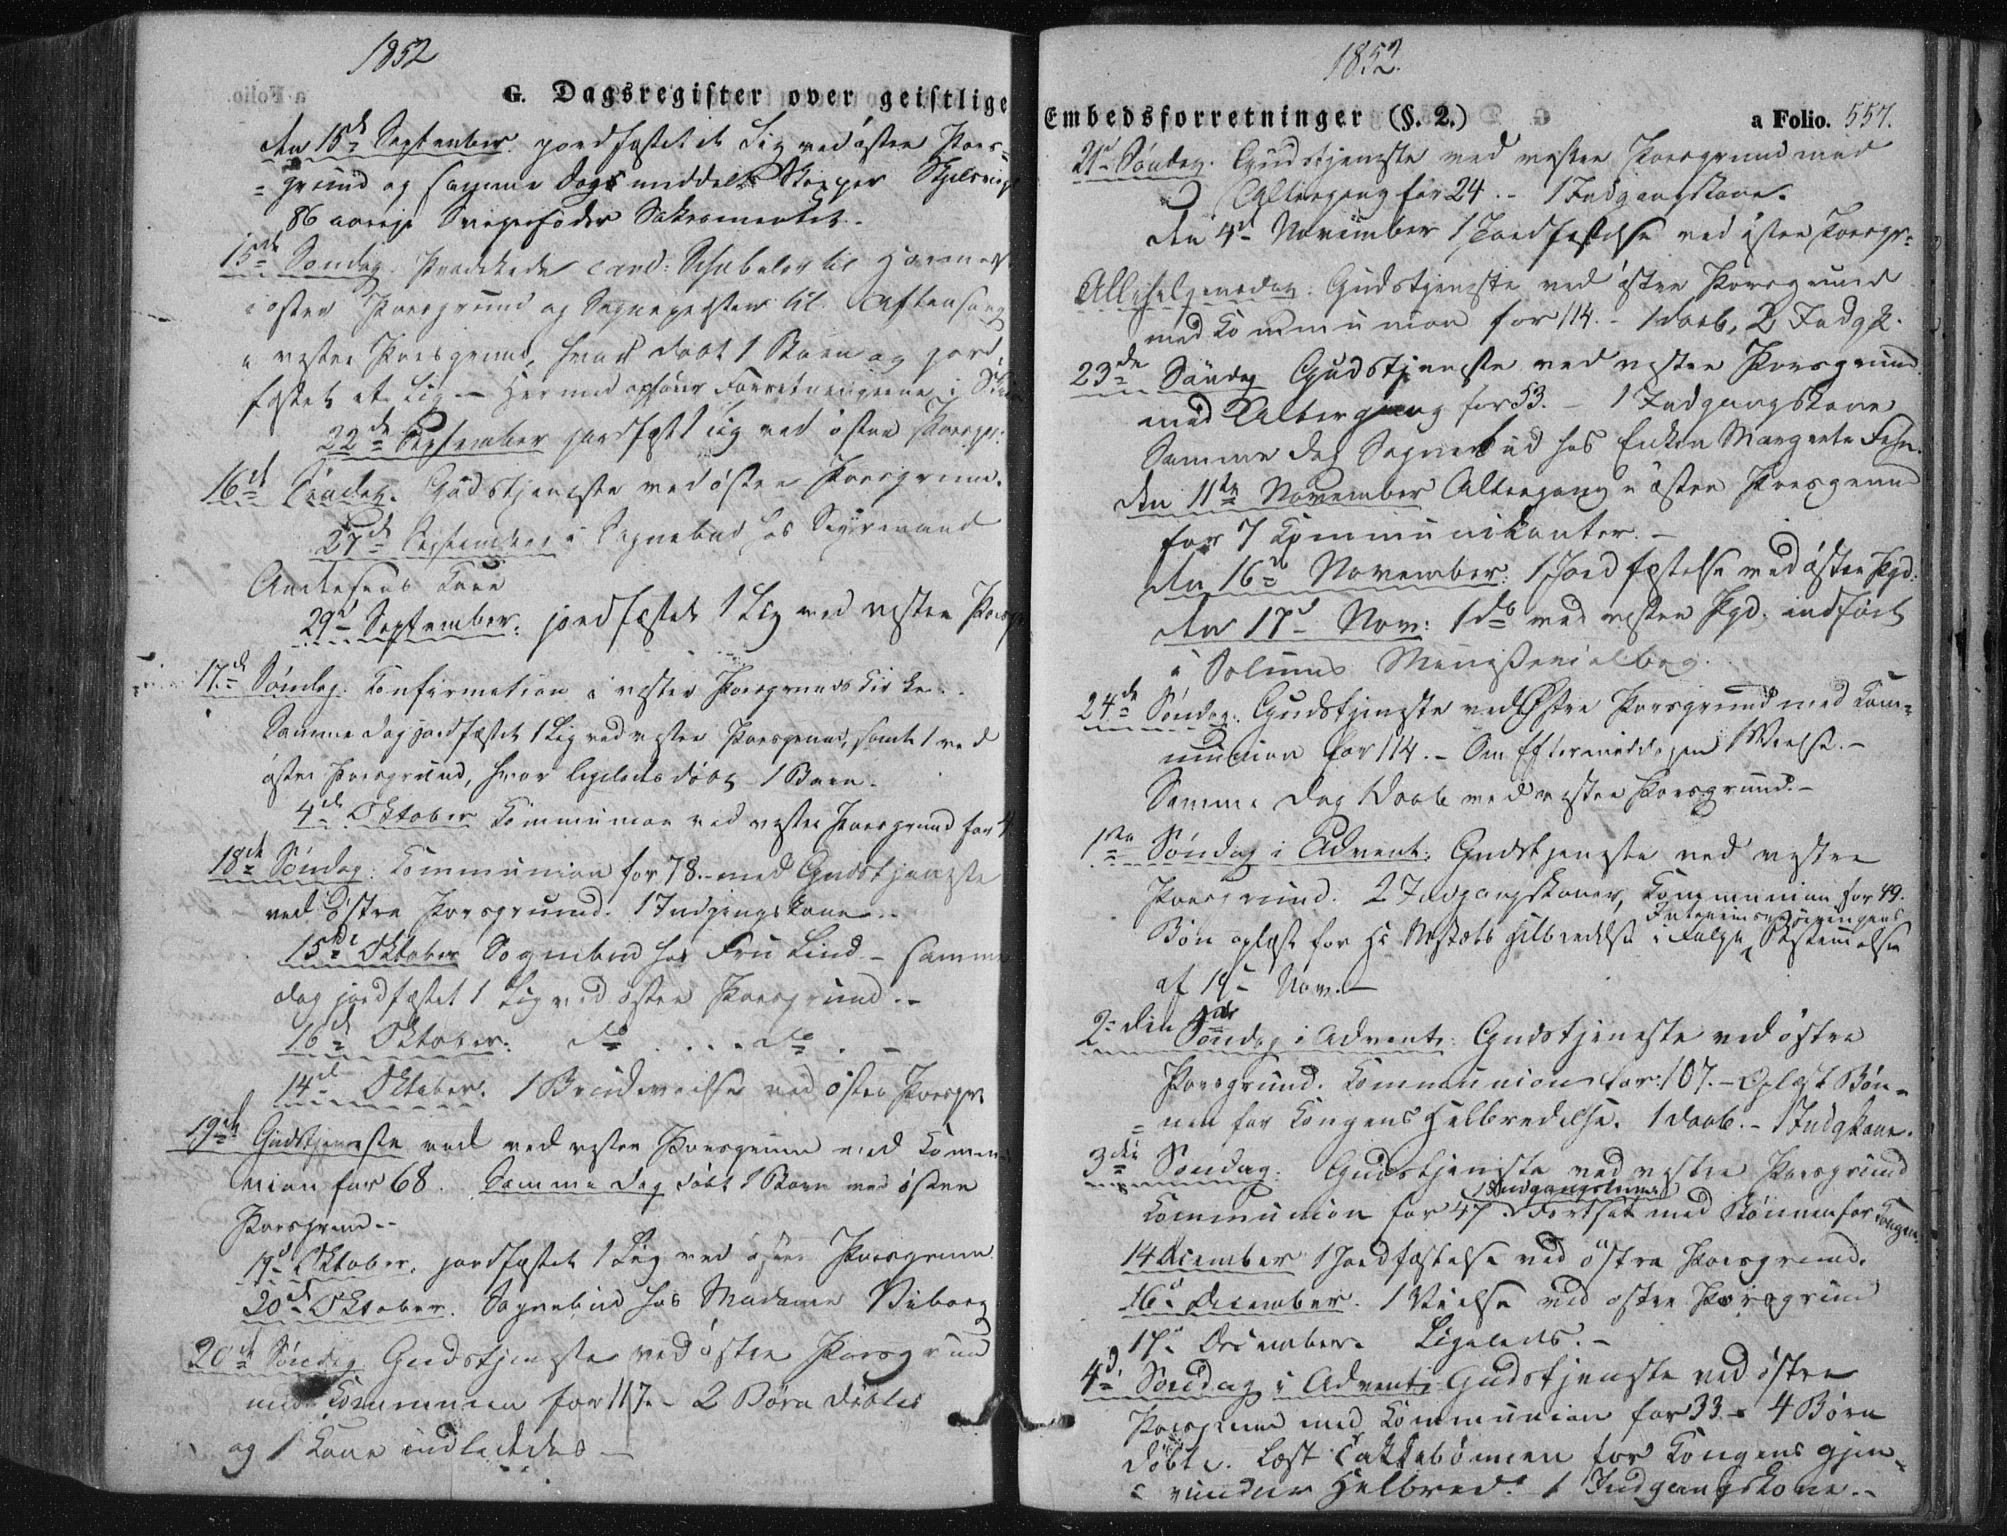 1852
G. Dagsregister over geistlige
den 15d September jordfæstet et Lig ved østre Pors-
grund og samme Dags meddelt Skipper
86 aarige Svigerfader Sakramentet.
15de Søndag. Prædikede cand: til
østre Porsgrund og Sognepræsten til Aftensang
i vestre Porsgrund, hvor døbt 1 Barn og jord-
fæstet et Lig — Hermed ophører Forretningerne i
22de September jordfæst 1 Lig ved østre Porsgr:
16d Søndag. Gudstjeneste ved østre Porsgrund.
27d September i Sognebud hos Styrmand
Andersens Kone
29d September: jordfæstet 1 Lig ved vestre Porsgr
17d Søndag. Confirmation i vestre Porsgrunds Kirke..
Samme Dag jordfæstet 1 Lig ved vestre Porsgrund, samt 1 ved
østre Porsgrund, hvor ligeledes døbt 1 Barn.
4d Oktober Communion ved vestre Porsgrund for
18d Søndag: Communion for 78.- med Gudstjeneste
ved østre Porsgrund. 1 Indgangskone.
15de Oktober Sognebud hos Fru Lind - samme
dag jordfæstet 1 Lig ved østre Porsgrund.-
16d Oktober: do . . . do . -
14d Oktober. 1 Brudevielse ved østre Porsgr.
19d Gudstjeneste ved ved vestre Porsgrund med Commu-
nion for 68. Samme Dag døbt 1 Barn ved østre
Porsgrund--
19d Oktober. jordfæstet 1 Lig ved østre Porsgrund
20d Oktober. Sognebud hos Madame Viborg
20d Søndag Gudstjeneste ved østre Porsgrund
med Communion for 117.- 2 Børn døbtes
og 1 Kone indlededes —
1852.
Embedsforretninger (§. 2.)
a Folio. 557.
21d Søndag. Gudstjeneste ved vestre Porsgrund med
Altergang for 24.- 1 Indgangskone.
den 4d November 1 Jordfæstelse ved østre Porsgr:
Allehelgensdag: Gudstjeneste ved østre Porsgrund
med Communion for 114.- 1 daab, 2 Indgk.
23de Søndag Gudstjeneste ved vestre Porsgrund
med Altergang for 53.- 1 Indgangskone
Samme dag Sognebud hos Enken Margrete
den 11te November Altergang i østre Porsgrund
for 7 Communikanter.-
den 16d November: 1 Jordfæstelse ved østre Pgd:
den 17d Nov: 1 do ved vestre Pgd. indført
i Solums Ministerialbog.
24d Søndag. Gudstjeneste ved Østre Porsgrund med Com-
munion for 114.- Om Eftermiddagen 1 Vielse.-
Samme Dag 1 Daab ved vestre Porsgrund.-
1ste Søndag i Advent: Gudstjeneste ved vestre
Porsgrund. 2 Indgangskoner, Communion for 49.
Bøn oplæst for Hs Majestæts Helbredelse i Følge Interimsregjeringens Bestemmelse
af 19- Nov.—
2den Søndag i Advent: Gudstjeneste ved østre
Porsgrund. Communion for 107.- Oplæst Bøn-
nen for Kongens Helbredelse. 1 Daab.- 1 Indgkone.
3die Søndag: Gudstjeneste ved vestre Porsgrund
Communion for 47. 1 Indgangskone Fortsat med Bønnen for Kongen.
14 December 1 Jordfæstelse ved østre Porsgrund.
16d December. 1 Vielse ved østre Porsgrund
17d December. Ligeledes.-
4d Søndag i Advent: Gudstjeneste ved østre
Porsgrund med Communion for 33.- 4 Børn
døbte. Læst Takkebønnen for Kongens gjen-
vundne Helbred. 1 Indgangskone.-